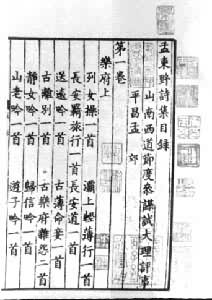 孟東野詩集目錄
山南西道節度參謀試大理評事
平昌孟 郊
第一卷
樂府上
列女操一首 灞上輕薄行一首
長安羈旅行一首 長安道一首
送遠吟一首 古薄命妾一首
古離別一首 古樂府雜怨首
靜女吟一首 歸信吟一首
山老吟一首 遊子吟一首